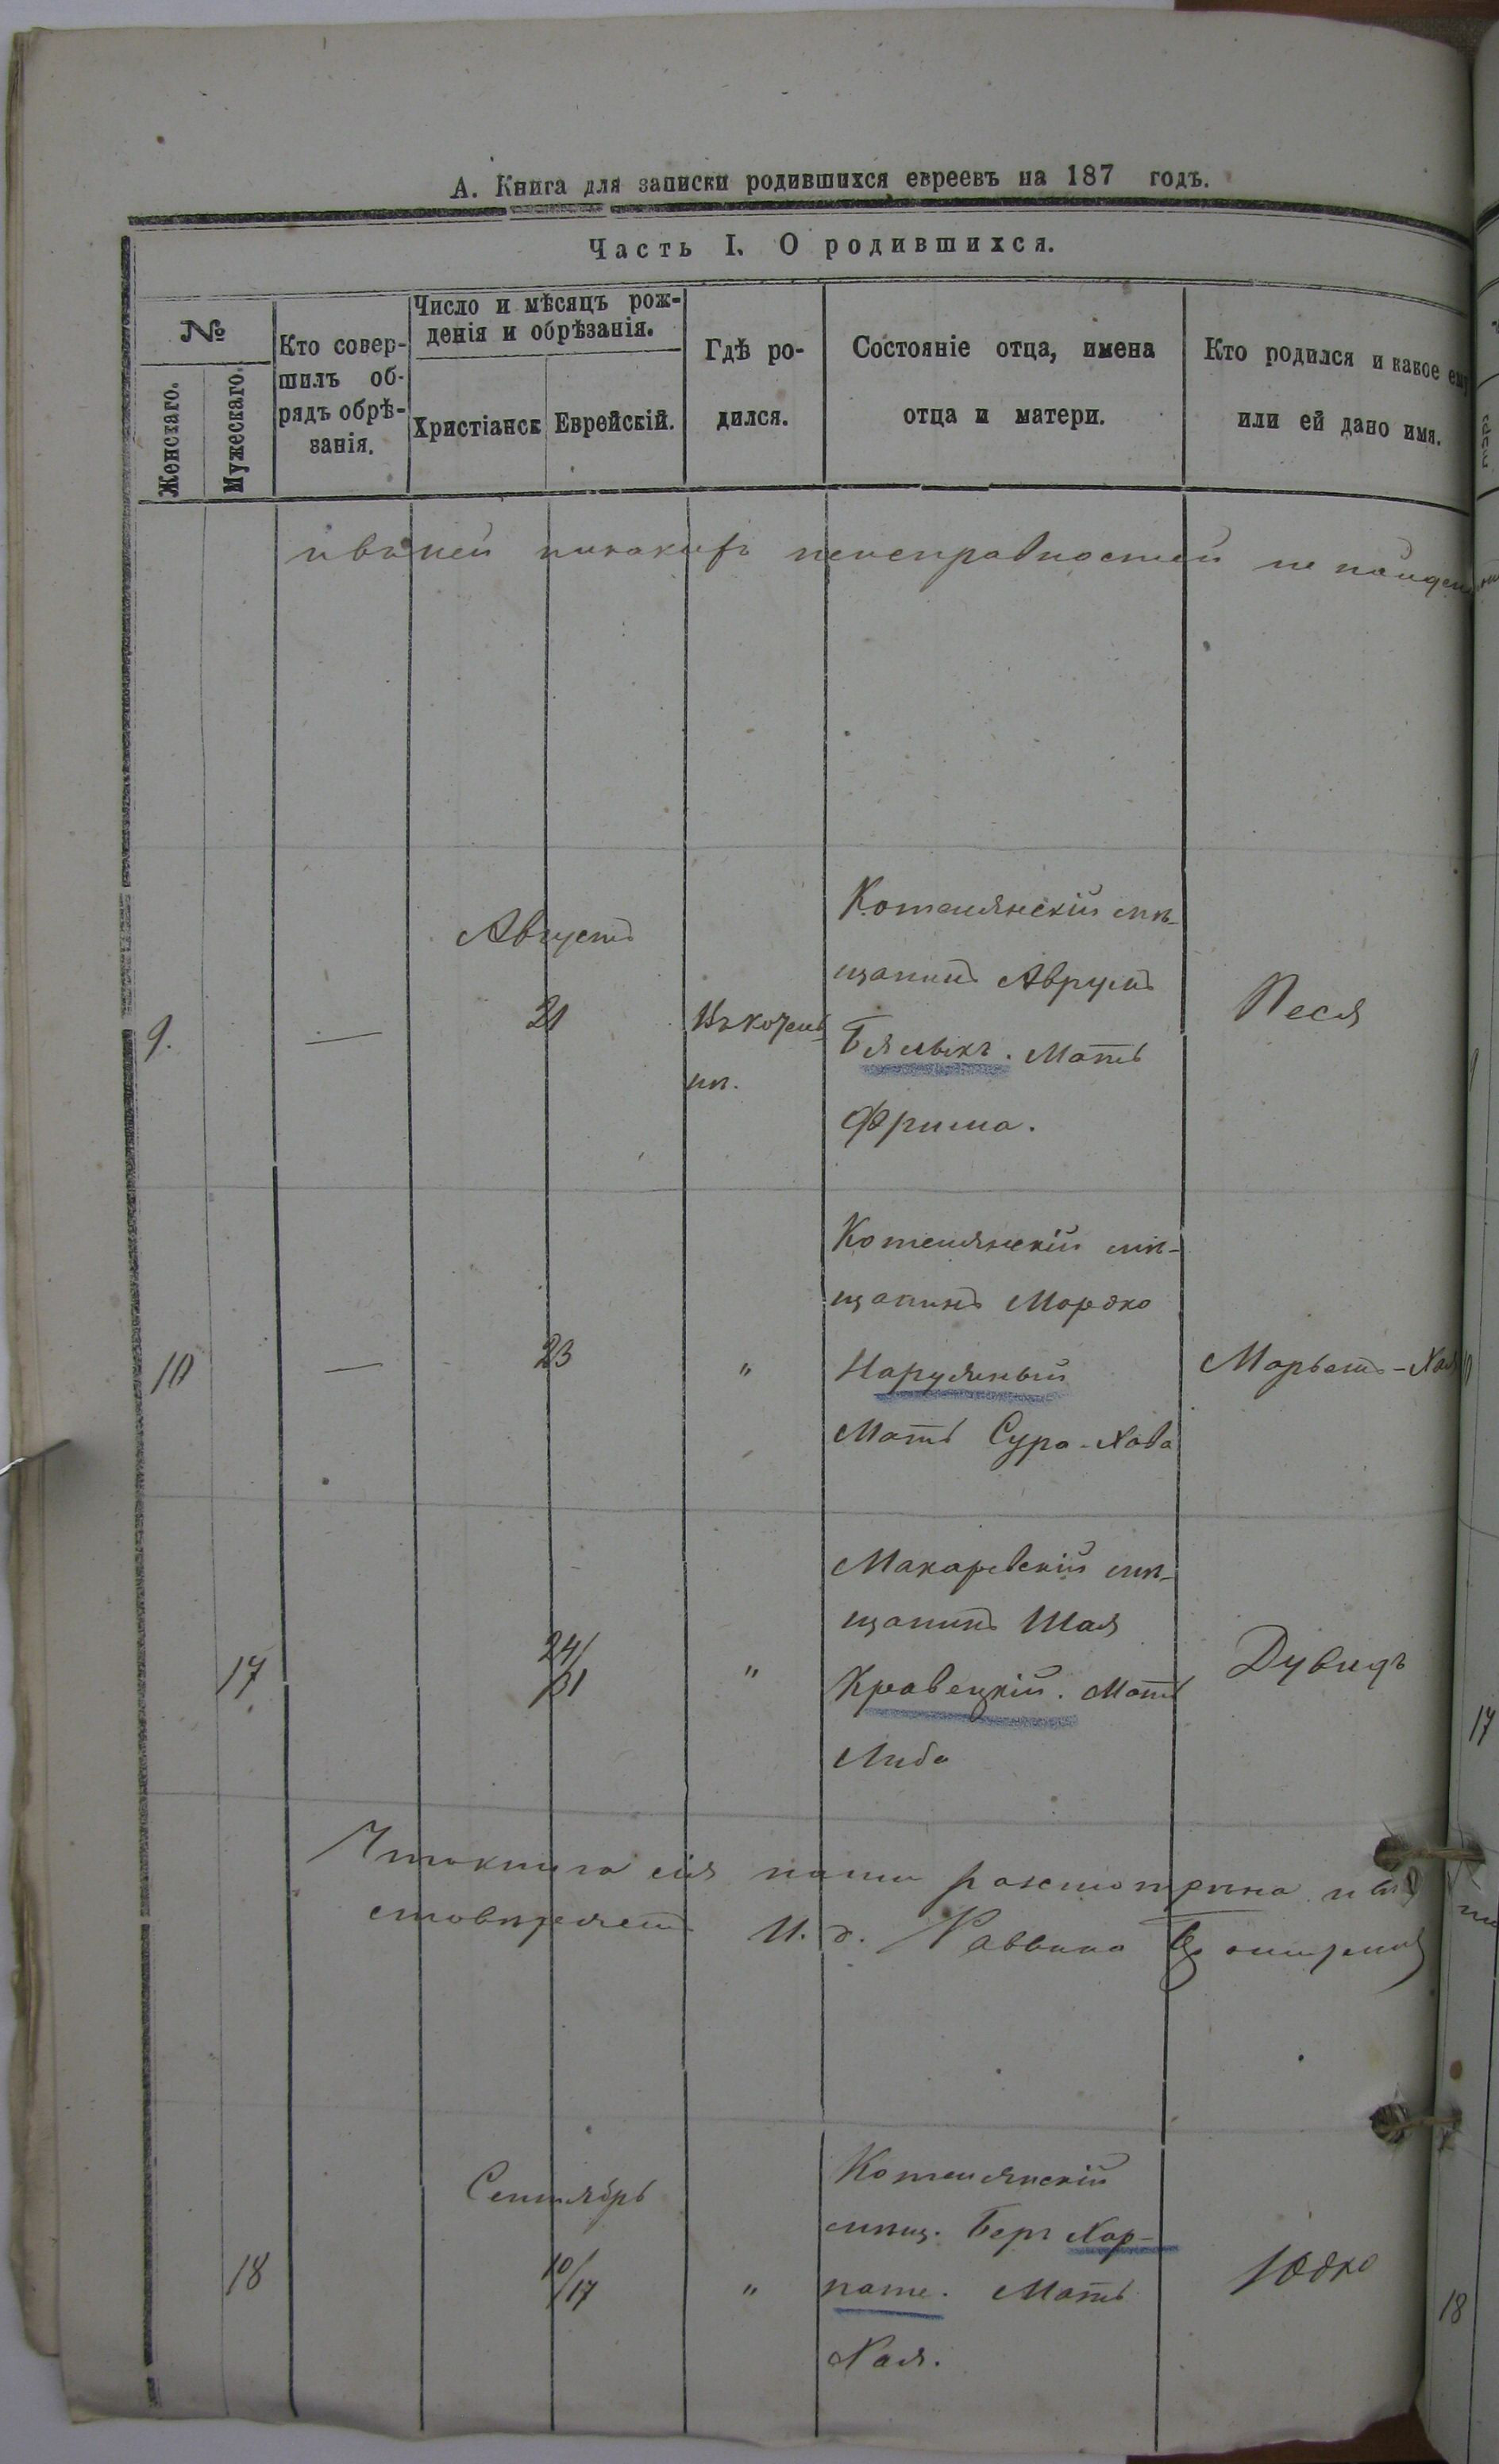 А. Книга для записки родившихся евреевъ на 187 годъ.
Часть I. О родившихся.
№
Женскаго.
Мужескаго.
Кто совер-
шилъ об-
рядъ обрѣ-
занія.
Число и мѣсяцъ рож-
денія и обрѣзанія.
Христіанск
Еврейскій.
Гдѣ ро-
дился.
Состояніе отца, имена
отца и матери.
Кто родился и какое ему
или ей дано имя.
и въ ней никакихъ неисправностей не найдено
Августъ
9.
—
21
Котелянскій мѣ-
щанинъ Аврумъ
Мать
Фрима.
Песя
10
—
23
"
Котелянскій мѣ-
щанинъ Мордко
Наруляный
Мать Сура-Хава
17
24/31
"
Макаревскій мѣ-
щанинъ Шая
Кравецкій. Мать
Либа
Дувидъ
Что книга сія нами разсмотрѣна и
И. д. Раввина
Сентябрь
18
10/17
"
Котелянскій
мѣщ. Беръ Хар-
Мать
Хая.
Юдко
17
18